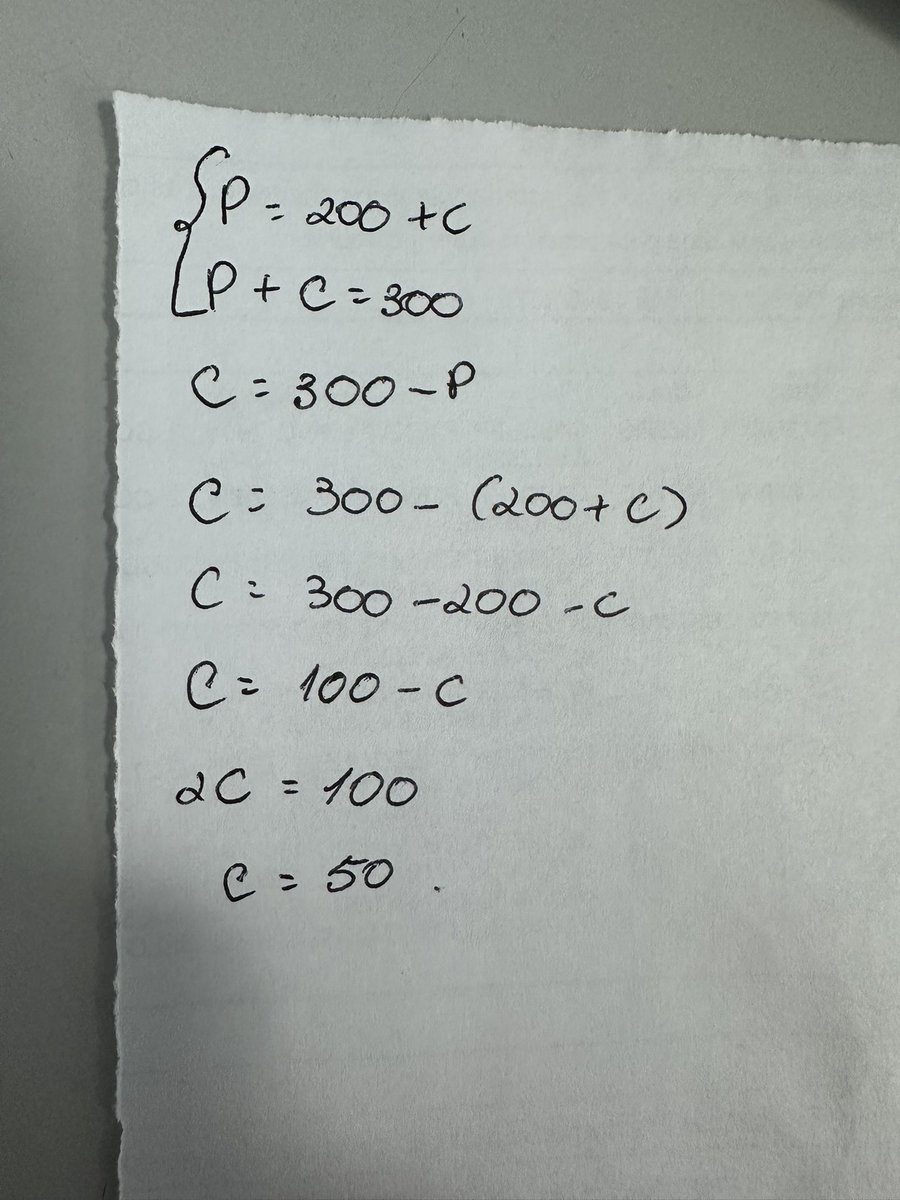 P = 200 + C
P + C = 300
C = 300 - P
C = 300 - (200 + C)
C = 300 - 200 - C
C = 100 - C
2C = 100
C = 50 .